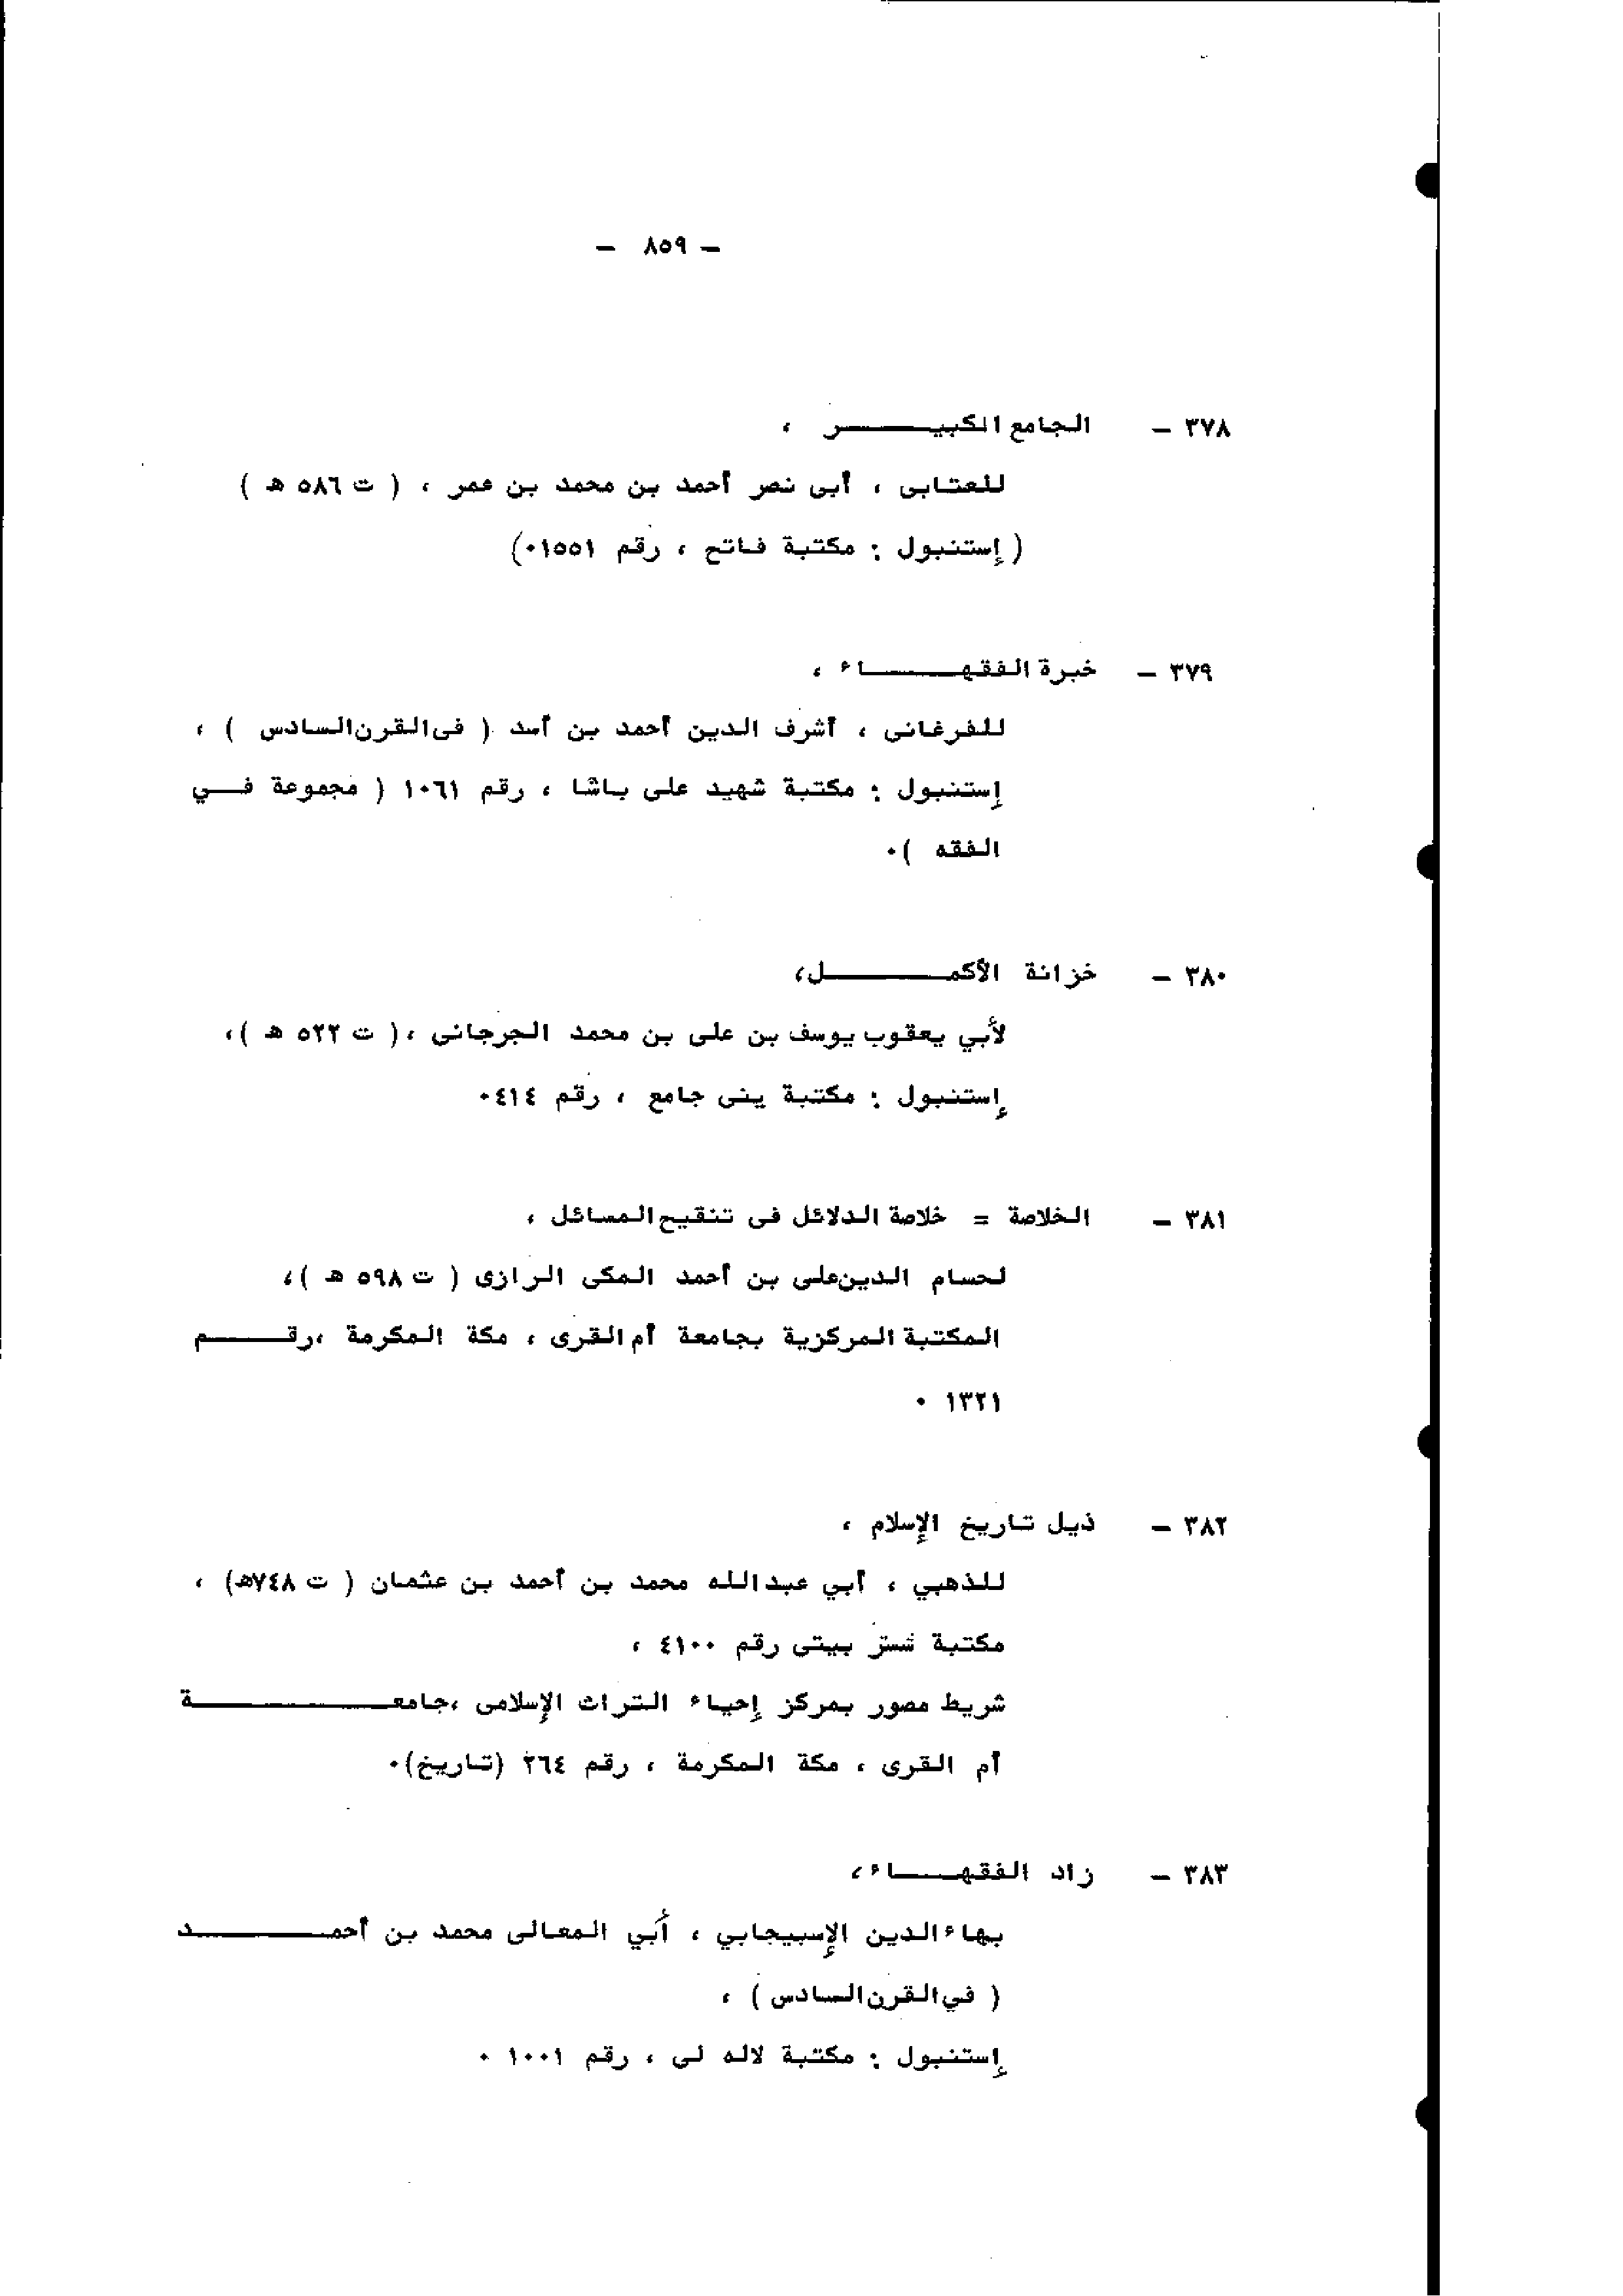 - ٨٥٩ -
٣٧٨ - الجامع الكبيـــــر ،
للعتابى ، أبى نصر أحمد بن محمد بن عمر ، ( ت ٥٨٦ ھ )
( إستنبول : مكتبة فاتح ، رقم ١٥٥١٠)
٣٧٩ - خبرة الفقهـــــاء ،
للفرغانى ، أشرف الدين أحمد بن أسد ( فى القرن السادس ) ،
إستنبول : مكتبة شهيد على باشا ، رقم ١٠٦١ ( مجموعة فـــي
الفقه )٠
٣٨٠ - خزانة الأكمـــــل،
لأبي يعقوب يوسف بن على بن محمد الجرجانى ،( ت ٥٢٢ ھ )،
إستنبول : مكتبة ينى جامع ، رقم ٤١٤٠
٣٨١ - الخلاصة = خلاصة الدلائل فى تنقيح المسائل ،
لحسام الدين على بن أحمد المكى الرازى ( ت ٥٩٨ ھ )،
المكتبة المركزية بجامعة أم القرى ، مكة المكرمة ،رقـــــم
١٣٢١ ٠
٣٨٢ - ذيل تاريخ الإسلام ،
للذهبي ، أبي عبدالله محمد بن أحمد بن عثمان ( ت ٧٤٨ھ) ،
مكتبة شستر بيتى رقم ٤١٠٠ ،
شريط مصور بمركز إحياء التراث الإسلامى ،جامعـــــة
أم القرى ، مكة المكرمة ، رقم ٢٦٤ (تاريخ)٠
٣٨٣ - زاد الفقهـــــاء،
بهاء الدين الإسبيجابي ، أبي المعالى محمد بن أحمـــــد
( في القرن السادس ) ،
إستنبول : مكتبة لاله لى ، رقم ١٠٠١ ٠